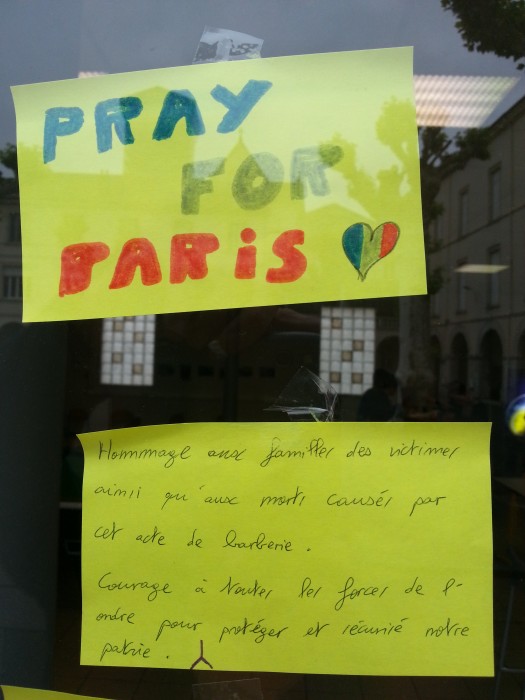 PRAY
FOR
PARiS
Hommage aux familles des victimes
ainsi qu'aux morts causés par
cet acte de barberie.
Courage à toutes les forces de l'-
ordre pour protéger et réunifié notre
patrie.